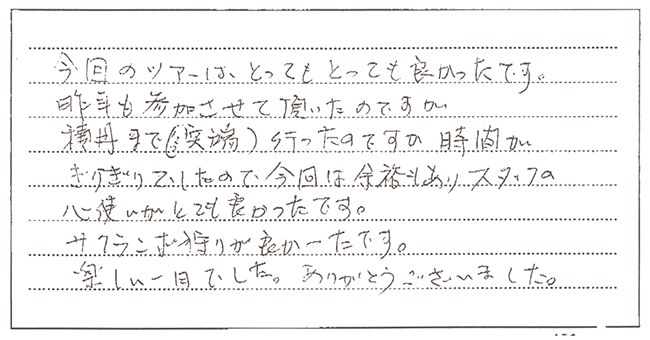 今回のツアーは、とってもとっても良かったです。
昨年も参加させて頂いたのですが
積丹まで(突端)行ったのですが時間が
ぎりぎりでしたので今回は余裕もありスタッフの
心使いがとても良かったです。
サクランボ狩りが良かったです。
楽しい一日でした。ありがとうございました。